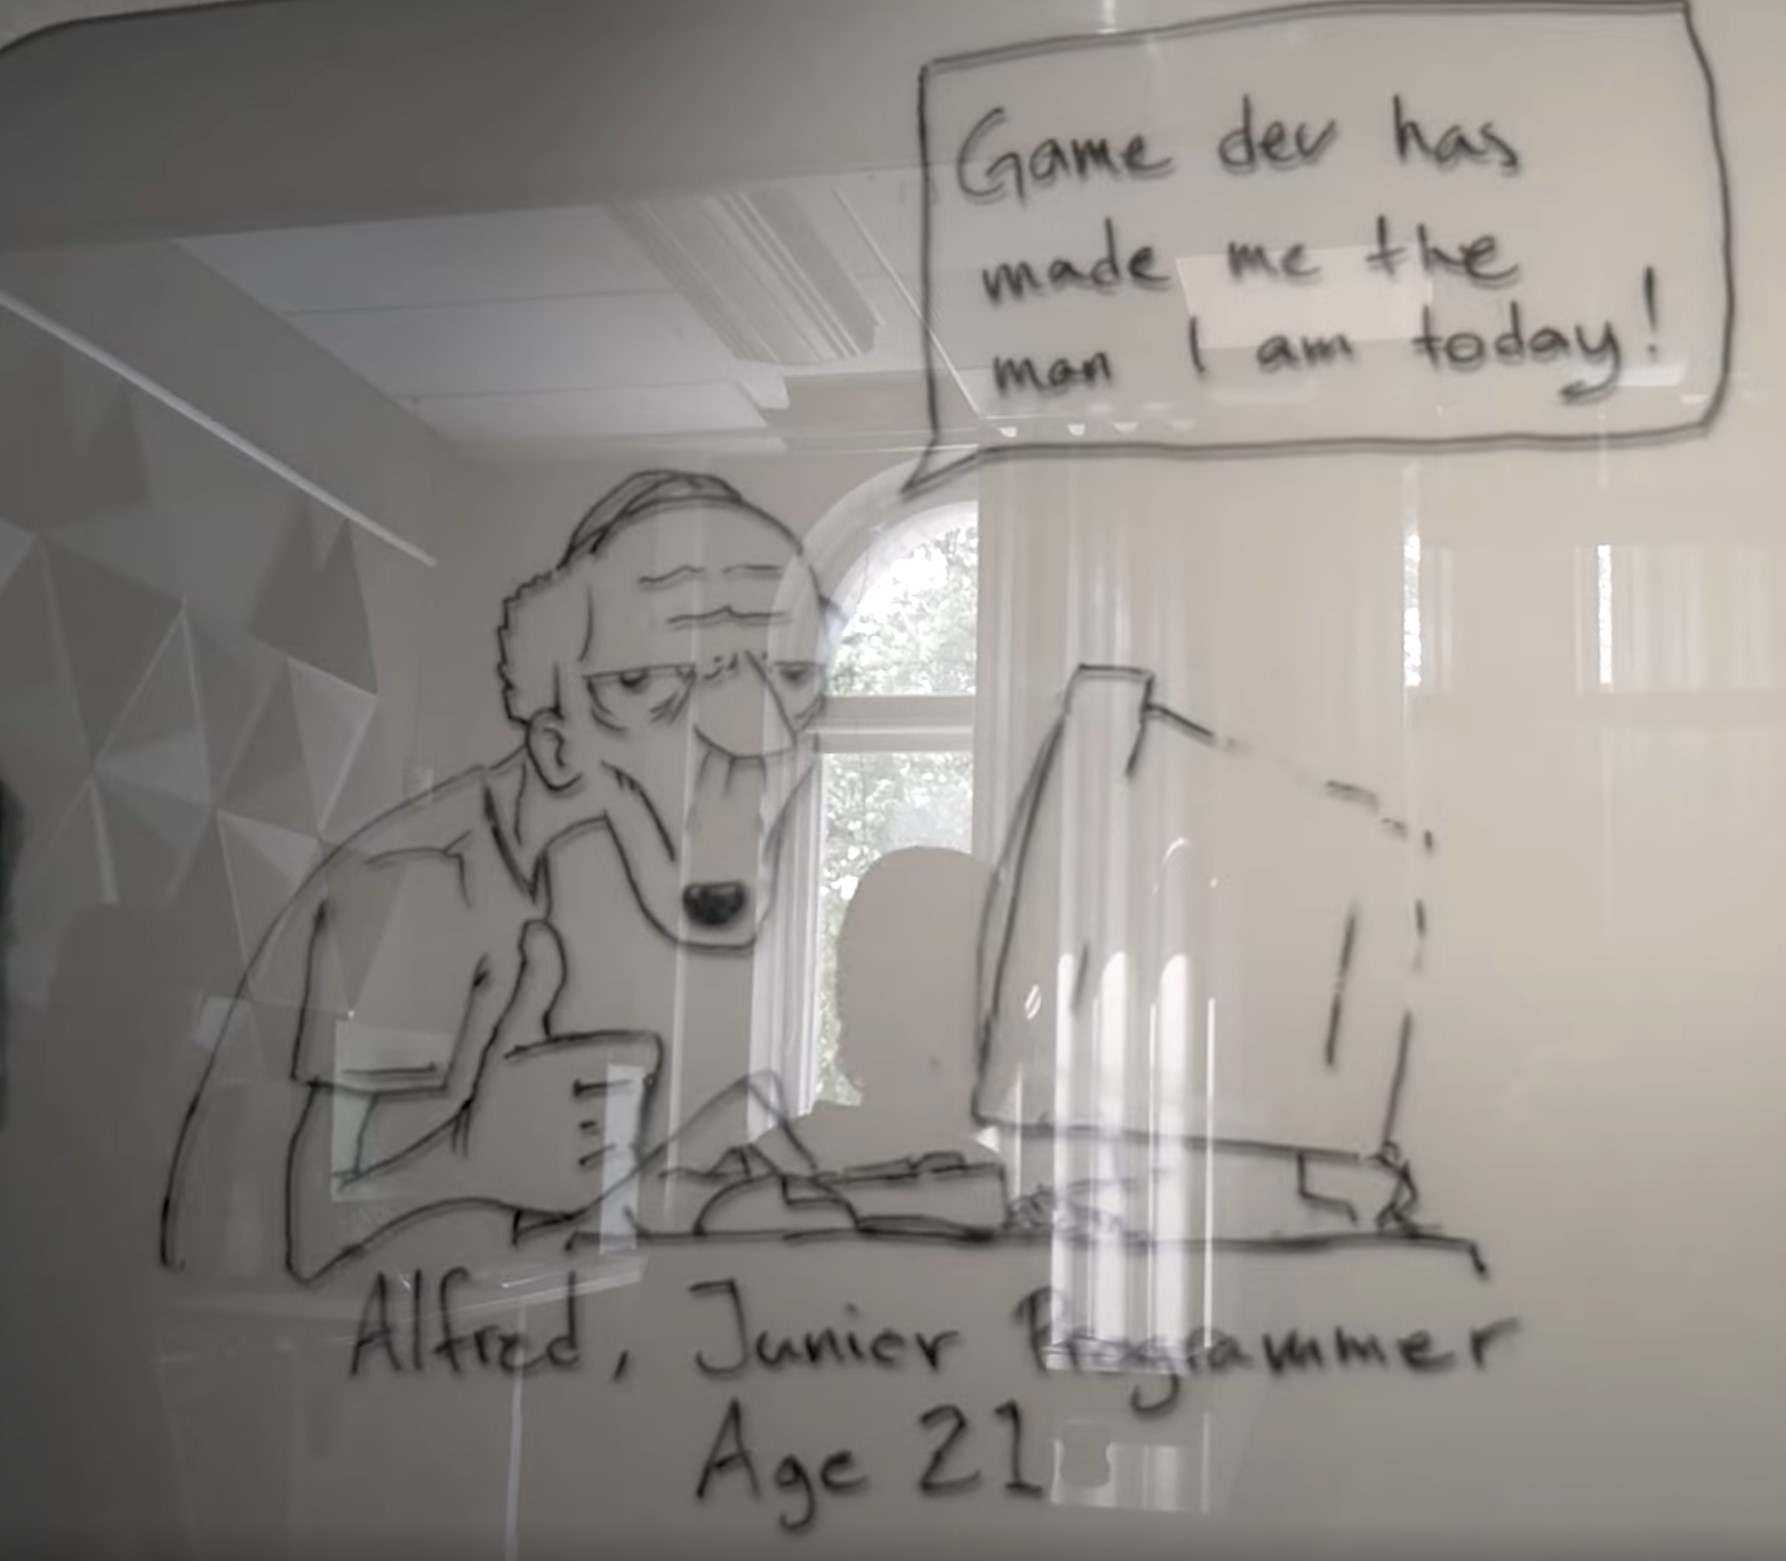 Game dev has
made me the
man I am today!
Alfred, Junior Programmer
Age 21